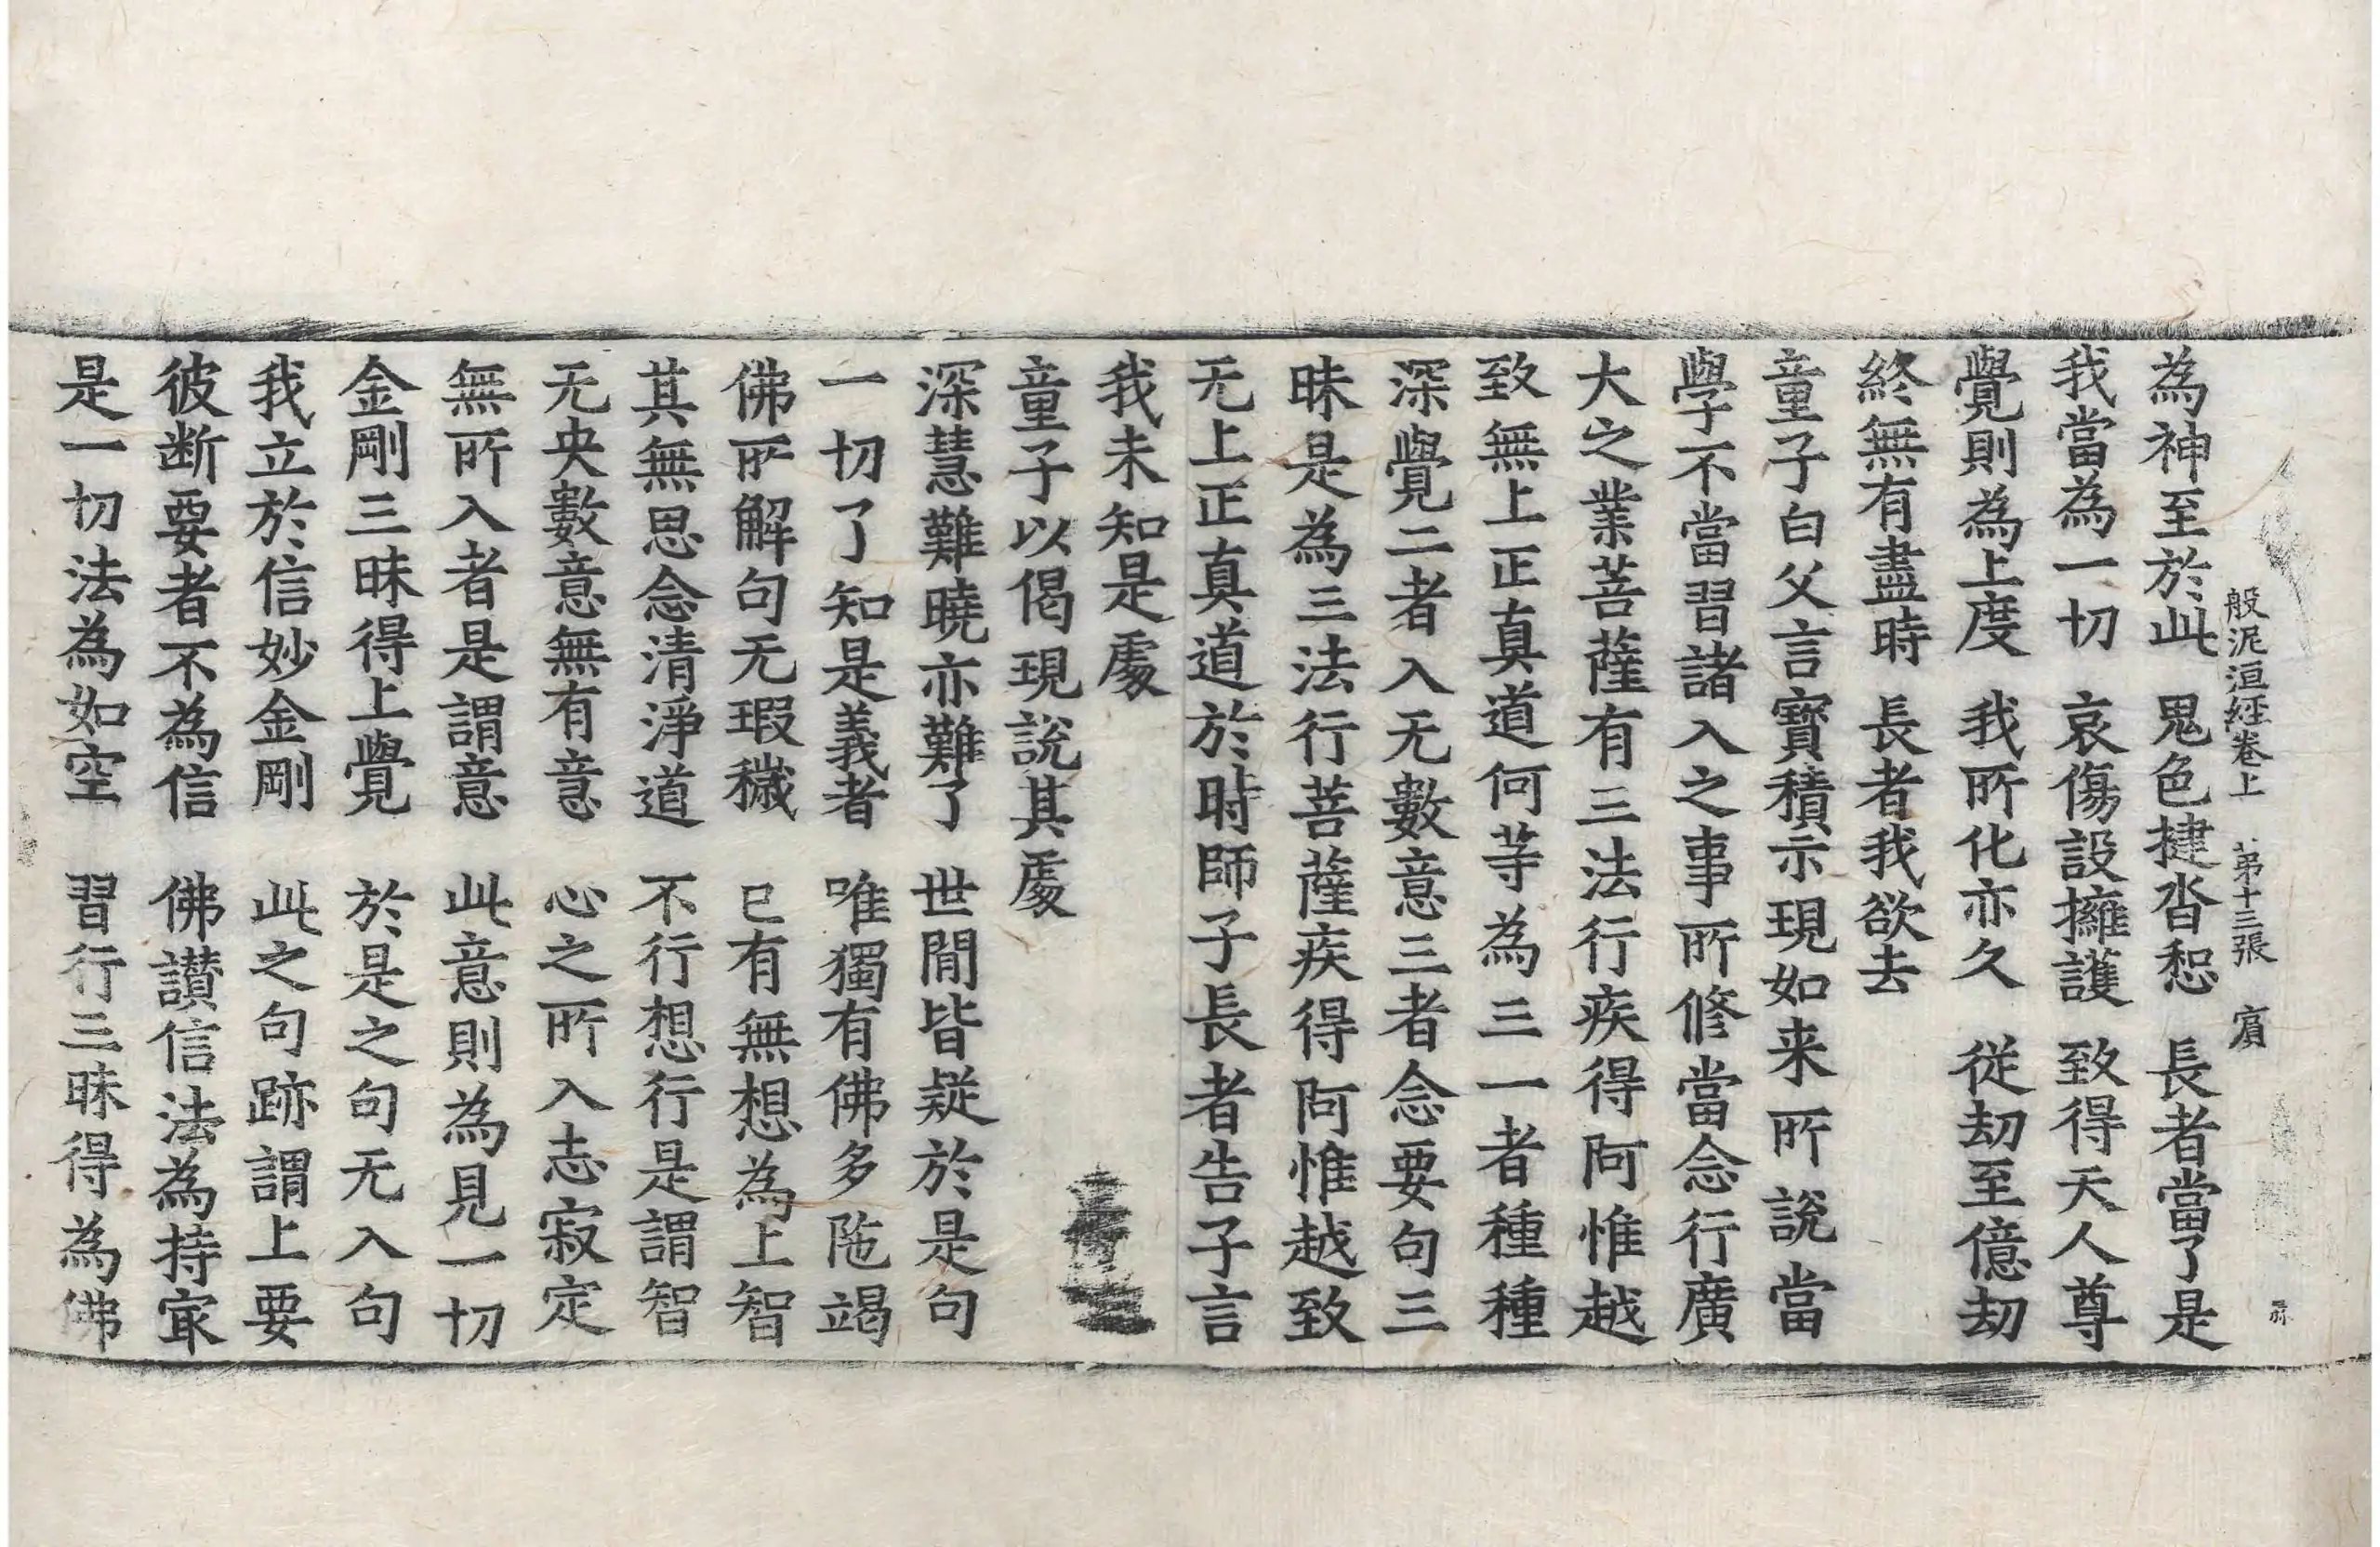 般泥洹経卷上 苐十三張 賔
為神至於此 鬼色揵沓惒 長者當了是
我當為一切 哀傷設擁護 致得天人尊
覺則為上度 我所化亦久 從劫至億劫
終無有盡時 長者我欲去
童子白父言寶積示現如来所說當
學不當習諸入之事所修當念行廣
大之業菩薩有三法行疾得阿惟越
致無上正真道何等為三一者種種
深覺二者入无數意三者念要句三
昧是為三法行菩薩疾得阿惟越致
无上正真道於時師子長者告子言
我未知是處
童子以偈現說其處
深慧難曉亦難了 世間皆疑於是句
一切了知是義者 唯獨有佛多陁竭
佛所解句无瑕穢 已有無想為上智
其無思念清淨道 不行想行是謂智
无央數意無有意 心之所入志寂定
無所入者是謂意 此意則為見一切
金剛三昧得上覺 於是之句无入句
我立於信妙金剛 此之句跡謂上要
彼断要者不為信 佛讃信法為持㝡
是一切法為如空 習行三昧得為佛